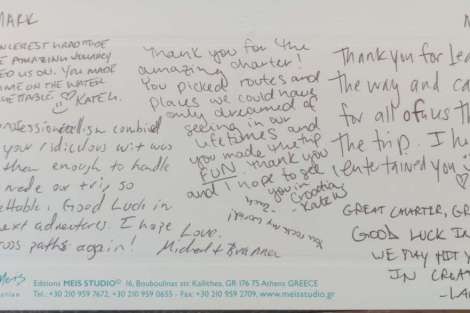 MARK
INCEREST GRATITUDE
E AMAZING JOURNEY
ED US ON. YOU MADE
ME ON THE WATER
ETTABLE. KATE G.
professionalism combined
your ridiculous wit was
than enough to handle
made our trip so
ettable. Good Luck in
next adventures. I hope
ross paths again!
Thank you for the
amazing charter!
You picked routes and
places we could have
only dreamed of
seeing in our
lifetimes and
you made the trip
FUN. Thank you
and I hope to see
you in
Croatia
- Kate W
You rock my world!
Love.
Michael + Breanna
Thank you for lea
the way and ca
for all of us th
the trip. I ho
I entertained you
GREAT CHARTER, GR
GOOD LUCK IN
WE MAY HIT Y
IN CROA
- LA
Editions MEIS STUDIO 16, Bouboulinas str. Kallithea, GR 176 75 Athens GREECE
Tel.: +30 210 959 7672, +30 210 959 0655 - Fax: +30 210 959 2709, www.meisstudio.gr